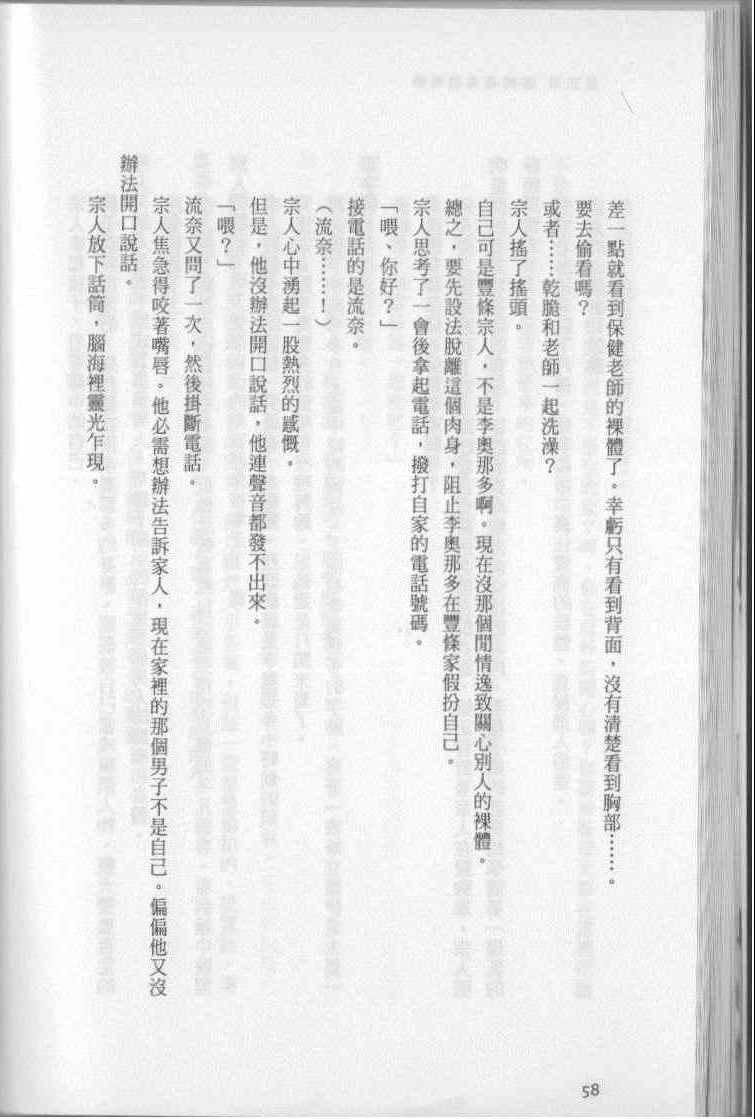 差一點就看到保健老師的裸體了。幸虧只有看到背面，沒有清楚看到胸部……。
要去偷看嗎？
或者……乾脆和老師一起洗澡？
宗人搖了搖頭。
自己可是豐條宗人，不是李奧那多啊。現在沒那個閒情逸致關心別人的裸體。
總之，要先設法脫離這個肉身，阻止李奧那多在豐條家假扮自己。
宗人思考了一會後拿起電話，撥打自家的電話號碼。
「喂、你好？」
接電話的是流奈。
（流奈……！）
宗人心中湧起一股熱烈的感慨。
但是，他沒辦法開口說話，他連聲音都發不出來。
「喂？」
流奈又問了一次，然後掛斷電話。
宗人焦急得咬著嘴唇。他必需想辦法告訴家人，現在家裡的那個男子不是自己。偏偏他又沒
辦法開口說話。
宗人放下話筒，腦海裡靈光乍現。
58